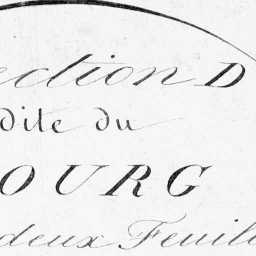 ection D
dite du
OURG
deux Feuill